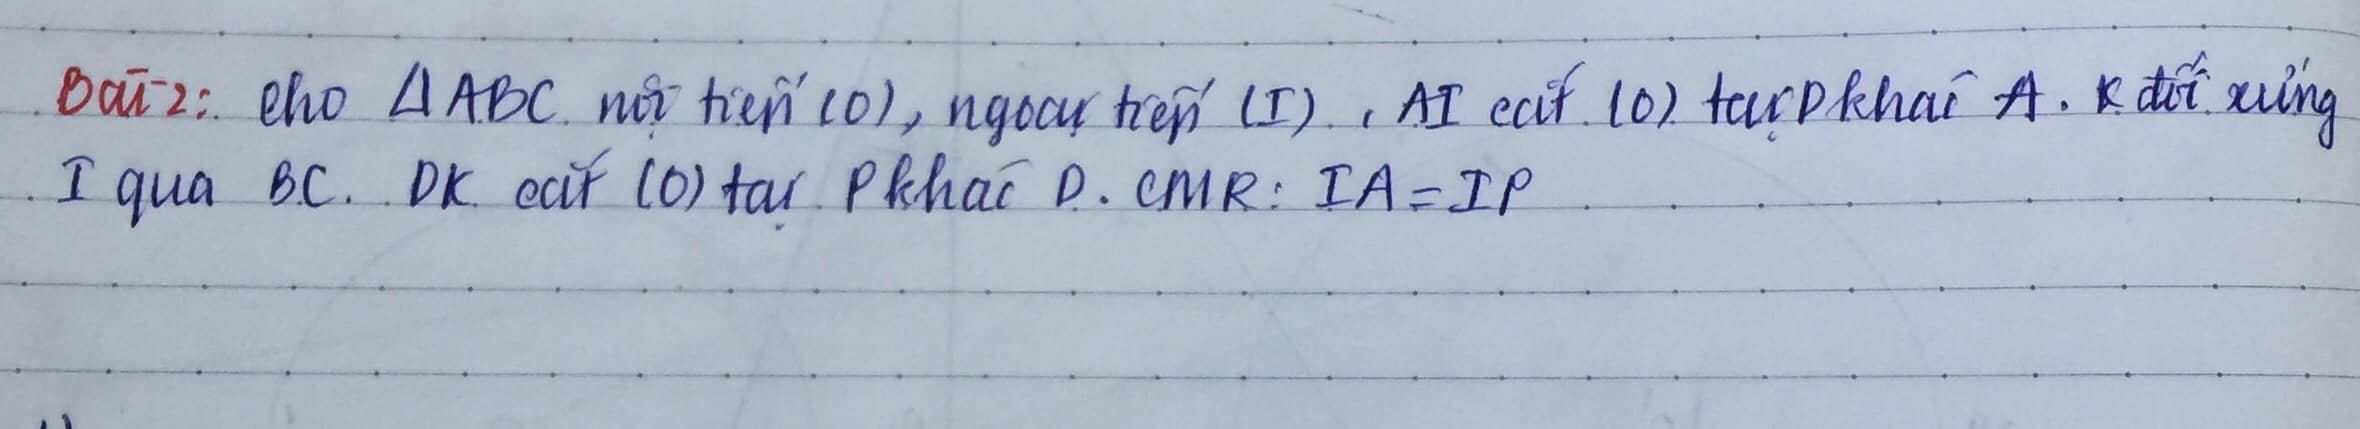 Bài 2: Cho ΔABC nội tiếp (O), ngoại tiếp (I). AI cắt (O) tại D khác A. K đối xứng
I qua BC. DK cắt (O) tại P khác D. CMR: IA = IP